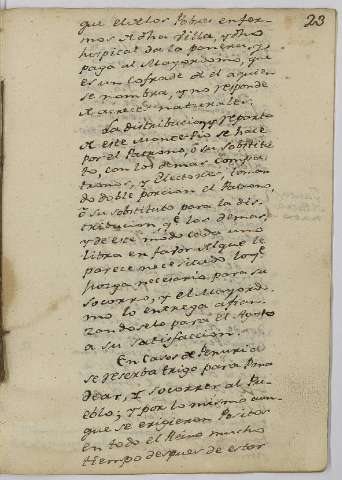 23
que el de los Pobres enfer-
mos de dha Villa, y dho
hospital da la panera, y
paga al Mayordomo, que
es un cofrade de el a quien
se nombra, y no responde
de creces naturales.
La distribucion y reparto
de este Monte-Pio se hace
por el Patrono, ô su sobstitu
to, con los demas Compa
tronos, y Electores, toman
do doble porcion el Patrono,
ô su sobstituto para la dis-
tribucion, qe los demas,
y de este modo cada uno
libra en favor del que le
parece necesitado lo qe
juzga necesario para su
socorro, y el Mayordo-
mo lo entrega afian-
zandoselo para el Agosto
a su satisfaccion.
En Casos de Penuria
se reserba trigo para Pana
dear, y socorrer al Pue-
eblo; y por lo mismo aun-
que se erigieron Positos
en todo el Reino mucho
tiempo despues de estar